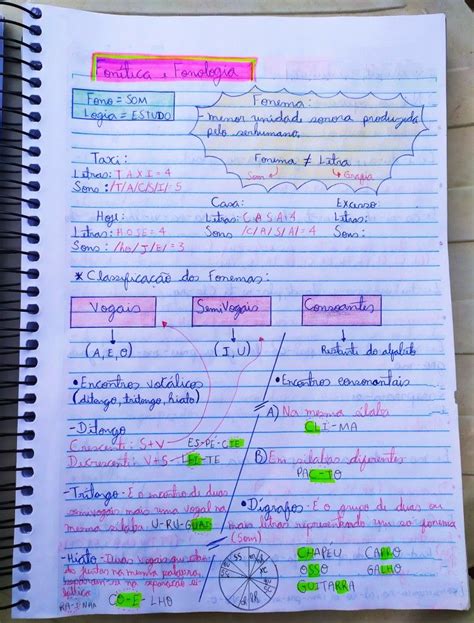 Fonética e Fonologia
Fono = SOM
Logia = ESTUDO
Fonema:
- menor unidade sonora produzida
pelo ser humano,
Fonema ≠ Letra
Som
Grafia
Taxi:
Letras: T A X I = 4
Sons: /T/A/C/S/I/ 5
Hoje:
Letras: H O J E = 4
Sons: /ho/J/E/ = 3
Casa:
Letras: C A S A = 4
Sons: /C/A/S/A/ = 4
Excesso
Letras:
Sons:
* Classificação dos Fonemas:
Vogais
SemiVogais
Consoantes
(A, E, O)
(I, U)
Restante do alfabeto
• Encontros vocálicos
(ditongo, tritongo, hiato)
- Ditongo
Crescente: S+V ES-PÉ-CIE
Decrescente: V+S LEI-TE
- Tritongo - É o encontro de duas
semivogais mais uma vogal na
mesma sílaba U-RU-GUAI
- Hiato - Duas vogais que
juntas na mesma palavra,
separam-se na separação si
lábica
CO-E-LHO
• Encontros consonantais
A) Na mesma sílaba
CLI-MA
B) Em sílabas diferentes
PAC-TO
• Dígrafos - É o grupo de duas ou
mais letras representando um só fonema
(Som)
CHAPÉU CARRO
OSSO GALHO
GUITARRA